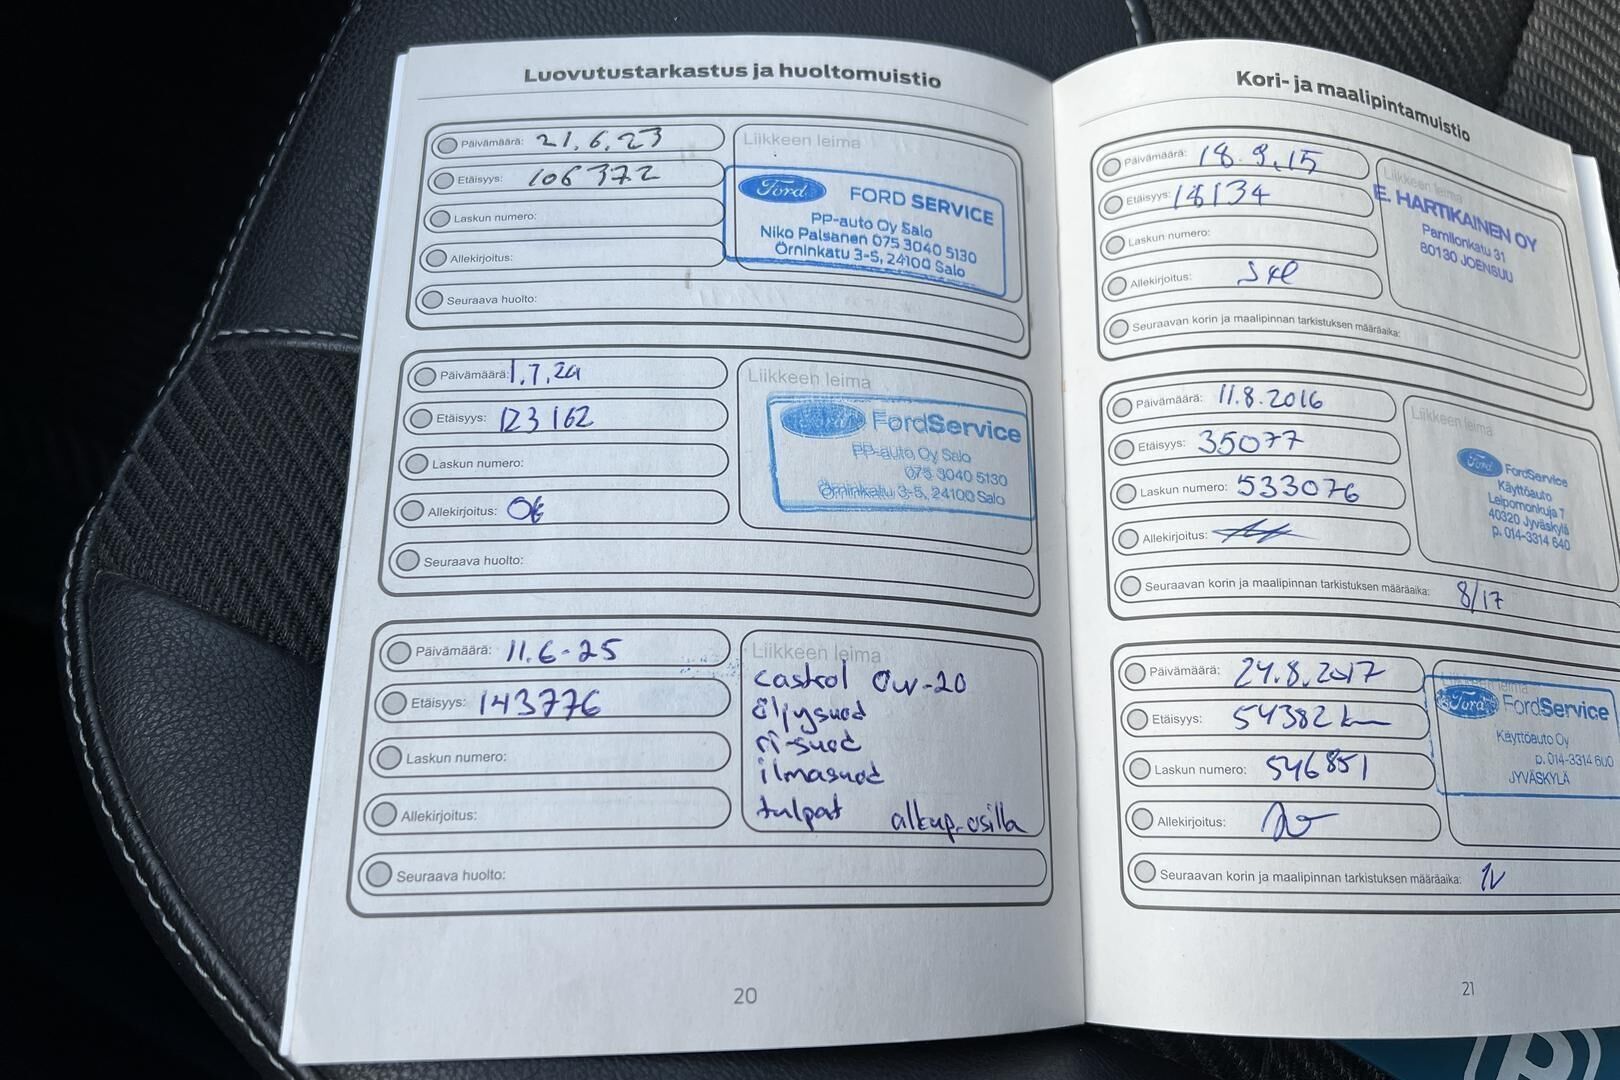 Luovutustarkastus ja huoltomuistio
Päivämäärä: 21.6.23
Etäisyys: 106372
Laskun numero:
Allekirjoitus:
Seuraava huolto:
Liikkeen leima
Ford FORD SERVICE
PP-auto Oy Salo
Niko Palsanen 075 3040 5130
Örninkatu 3-5, 24100 Salo
Päivämäärä: 1.7.24
Etäisyys: 123162
Laskun numero:
Allekirjoitus:
Seuraava huolto:
Liikkeen leima
FordService
PP-auto Oy Salo
075 3040 5130
Örninkatu 3-5, 24100 Salo
Päivämäärä: 11.6-25
Etäisyys: 143776
Laskun numero:
Allekirjoitus:
Seuraava huolto:
Liikkeen leima
castrol 0w-20
öljysuod
ri-suod
ilmasuod
tulpat alkup.osilla
20
Kori- ja maalipintamuistio
Päivämäärä: 18.9.15
Etäisyys: 18134
Laskun numero:
Allekirjoitus:
Seuraavan korin ja maalipinnan tarkistuksen määräaika:
Liikkeen leima
E. HARTIKAINEN OY
Pamilonkatu 31
80130 JOENSUU
Päivämäärä: 11.8.2016
Etäisyys: 35077
Laskun numero: 533076
Allekirjoitus:
Seuraavan korin ja maalipinnan tarkistuksen määräaika: 8/17
Liikkeen leima
Ford FordService
Käyttöauto
Leipomonkuja 7
40320 Jyväskylä
p. 014-3314 640
Päivämäärä: 24.8.2017
Etäisyys: 54382 km
Laskun numero: 546851
Allekirjoitus:
Seuraavan korin ja maalipinnan tarkistuksen määräaika:
Liikkeen leima
Ford FordService
Käyttöauto Oy
p. 014-3314 600
JYVÄSKYLÄ
21